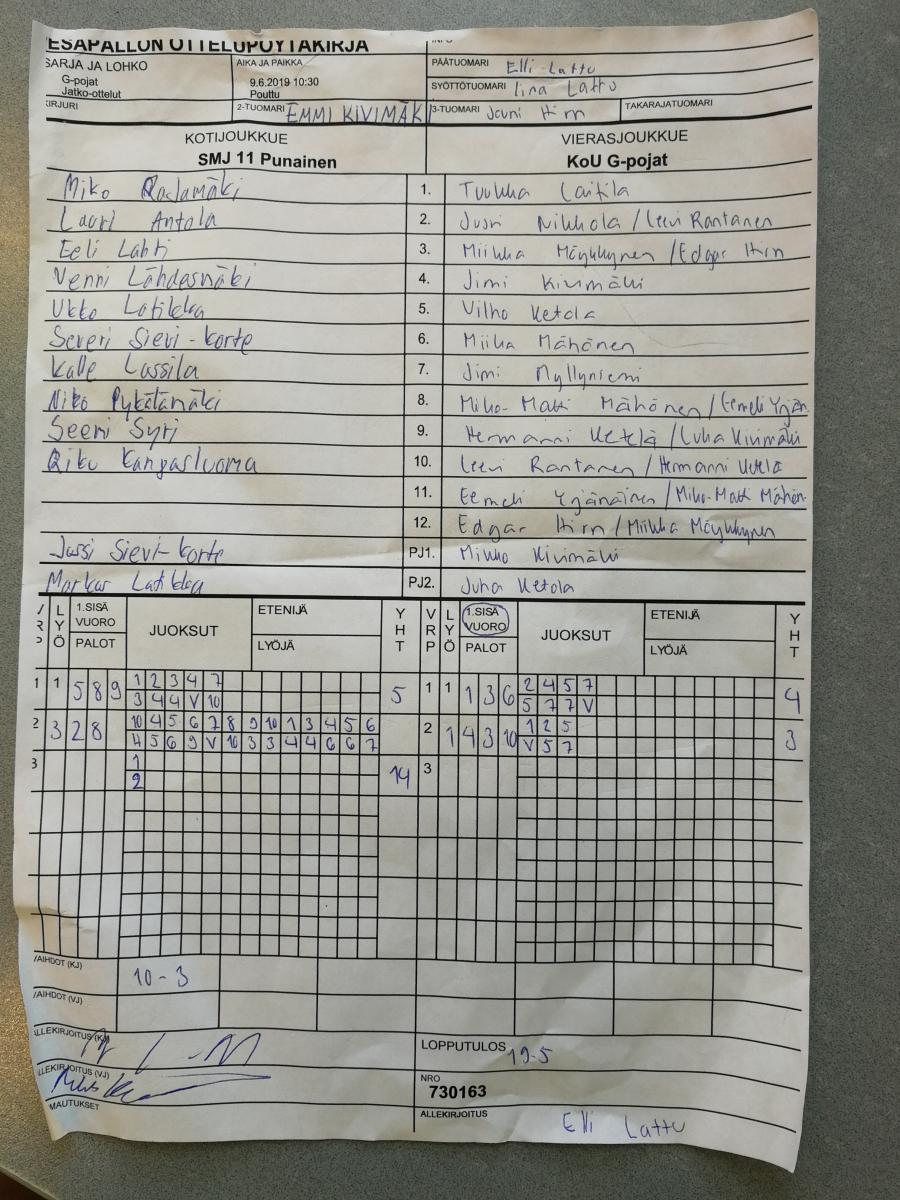 ESÄPALLON OTTELUPÖYTÄKIRJA
SARJA JA LOHKO
G-pojat
Jatko-ottelut
AIKA JA PAIKKA
9.6.2019 10:30
Pouttu
PÄÄTUOMARI Elli Lattu
SYÖTTÖTUOMARI Iina Lattu
KIRJURI
2-TUOMARI EMMI KIVIMÄKI
3-TUOMARI Jouni Hirn
TAKARAJATUOMARI
KOTIJOUKKUE VIERASJOUKKUE
SMJ 11 Punainen KoU G-pojat
Miko 1. Tuukka Laitila
Lauri Antola 2. Jusri Nikkola / Leevi Rantanen
Eeli Lahti 3. Miikka Möykkynen / Edgar Hirn
Venni Lähdesmäki 4. Jimi Kivimäki
Ukko Latikka 5. Vilho Ketola
Severi Sievi-Korte 6. Miika Mähönen
Kalle Lassila 7. Jimi Myllyniemi
Niko Pykälämäki 8. Miko-Matti Mähönen / Eemeli Yrjän
Seemi Syri 9. Hermanni Ketelä / Luka Kivimäki
Riku Kangasluoma 10. Leevi Rantanen / Hermanni Ketelä
11. Eemeli Yrjänäinen / Miko-Matti Mähön.
12. Edgar Hirn / Miikka Möykkynen
Jussi Sievi-Korte PJ1. Mikko Kivimäki
Markus Latikka PJ2. Juha Ketola
LYÖ 1.SISÄ VUORO PALOT JUOKSUT ETENIJÄ LYÖJÄ YHT VRP LYÖ 1.SISÄ VUORO PALOT JUOKSUT ETENIJÄ LYÖJÄ YHT
1 1 5 8 9 1 2 3 4 7 5 1 1 1 3 6 2 4 5 7 4
3 4 4 V 10 5 7 7 V
2 3 2 8 10 4 5 6 7 8 9 10 1 3 4 5 6 2 1 4 3 10 1 2 5 3
4 5 6 9 V 10 3 3 4 4 6 6 7 V 5 7
3 1 14 3
2
VAIHDOT (KJ) 10-3
VAIHDOT (VJ)
ALLEKIRJOITUS (KJ)
LOPPUTULOS 19-5
ALLEKIRJOITUS (VJ)
NRO
730163
MAUTUKSET
ALLEKIRJOITUS
Elli Lattu